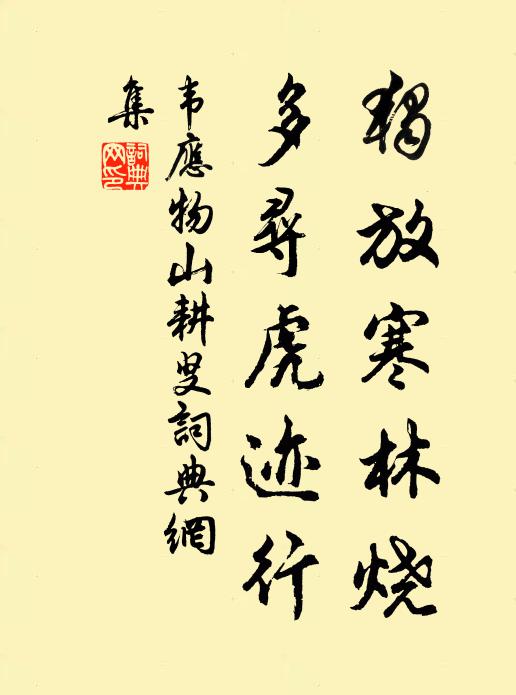 獨放寒林烧
多尋虎迹行
韦應物山耕叟詞典網
集
詞典
网印